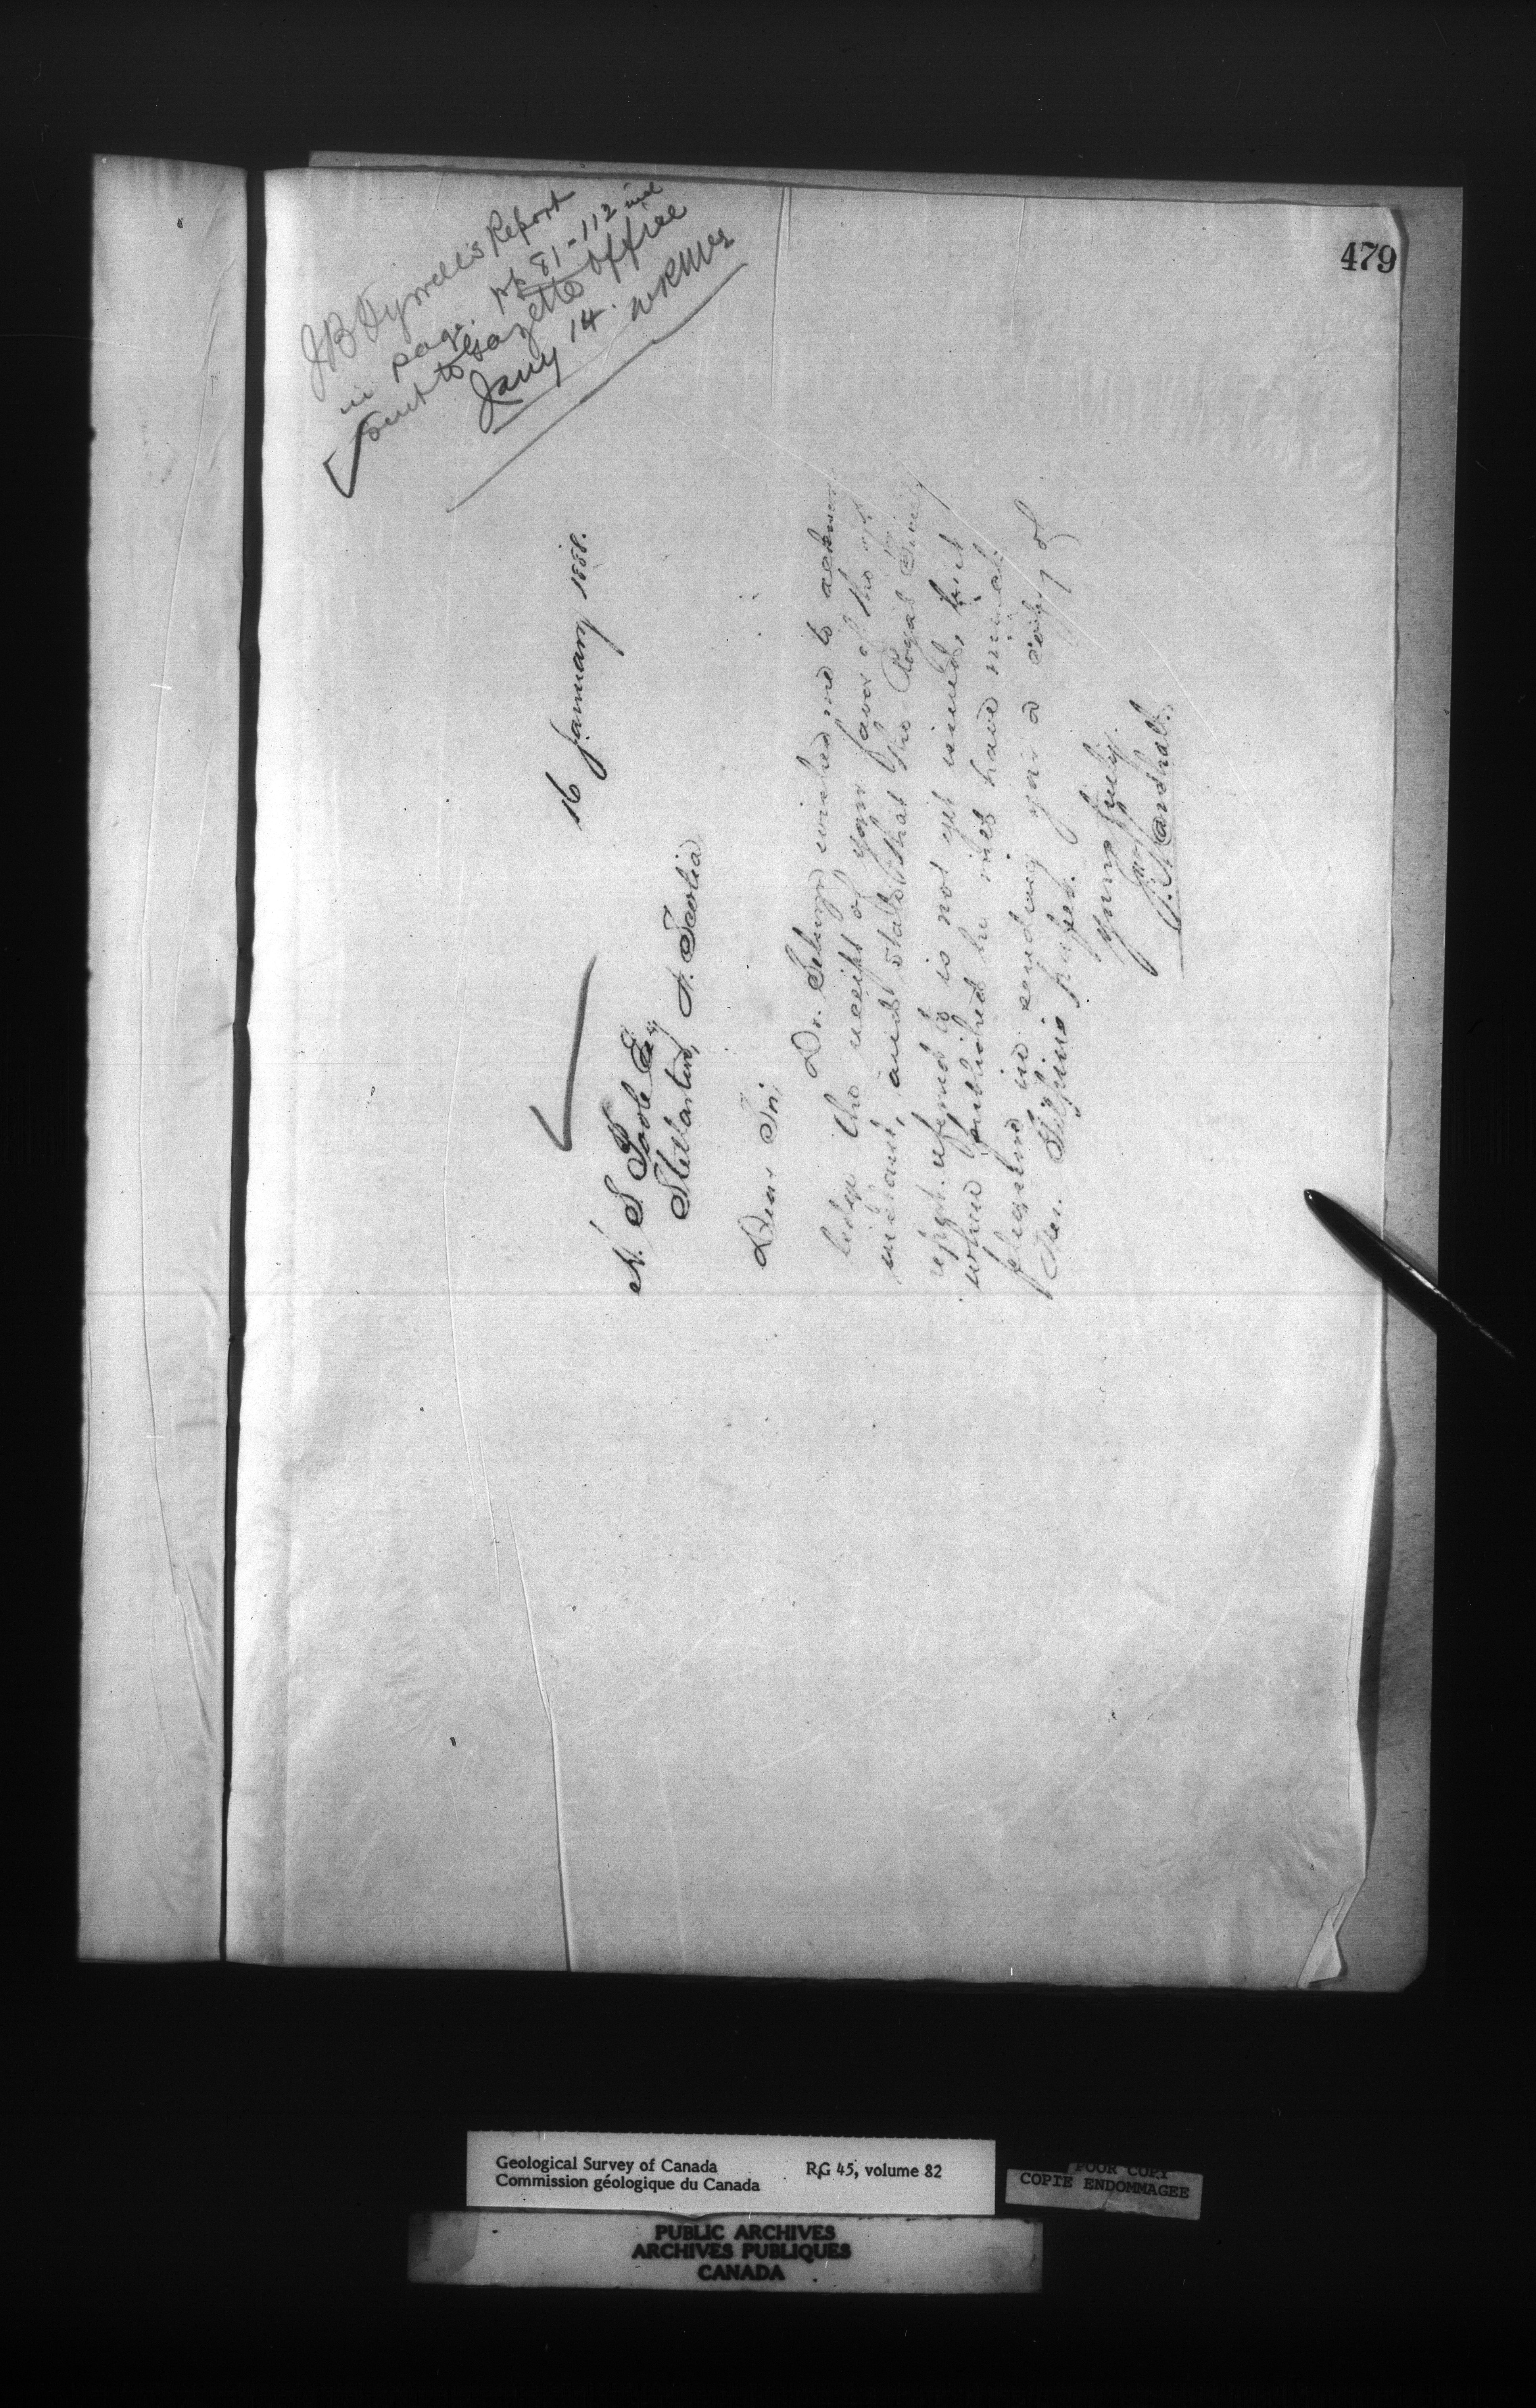 479
J B Tyrrell's Report
in page. pp 81-112 incl
Sent to Gazette Office
Jany 14.
16 January 1888.
H. S. Poole Esq
Stellarton, N. Scotia
Dear Sir,
Dr. Selwyn wishes me to acknow
ledge the receipt of your favor of the
instant, and state that the Royal Society
report referred to is not yet issued, but
when published he will have much
pleasure in sending you a copy of
Mr. Gilpins paper.
Yours truly,
Marshall.
Geological Survey of Canada
Commission géologique du Canada
RG 45, volume 82
POOR COPY
COPIE ENDOMMAGEE
PUBLIC ARCHIVES
ARCHIVES PUBLIQUES
CANADA